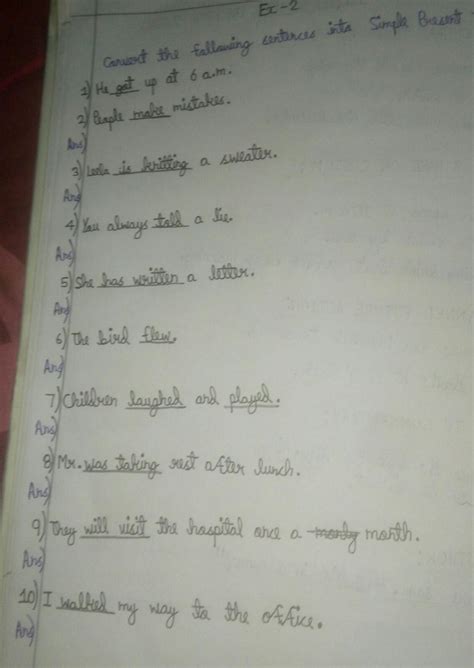 Ex-2
Convert the following sentences into Simple Present
1) He got up at 6 a.m.
2) People make mistakes.
Ans)
3) Leela is knitting a sweater.
Ans)
4) You always told a lie.
Ans)
5) She has written a letter.
Ans)
6) The bird flew.
Ans)
7) Children laughed and played.
Ans)
8) Mr. was taking rest after lunch.
Ans)
9) They will visit the hospital once a month.
Ans)
10) I walked my way to the office.
Ans)